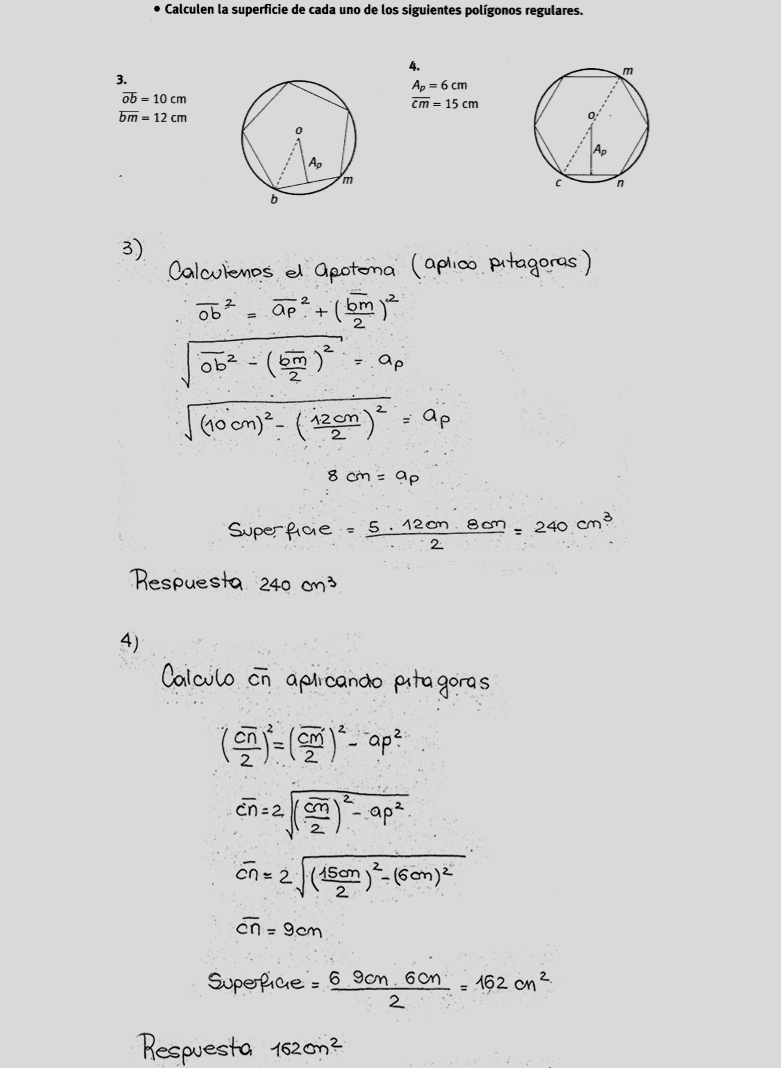 • Calculen la superficie de cada uno de los siguientes polígonos regulares.
3.
ob = 10 cm
bm = 12 cm
o
Ap
m
b
4.
Ap = 6 cm
cm = 15 cm
m
o
Ap
c n
3)
Calculemos el apotema (aplico pitagoras)
ob² = ap² + (bm/2)²
√(ob² - (bm/2)²) = ap
√((10 cm)² - (12cm/2)²) = ap
8 cm = ap
Superficie = 5 . 12cm . 8cm / 2 = 240 cm³
Respuesta 240 cm³
4)
Calculo cn aplicando pitagoras
(cn/2)² = (cm/2)² - ap²
cn = 2 √((cm/2)² - ap²)
cn = 2 √((15cm/2)² - (6cm)²)
cn = 9cm
Superficie = 6 9cm . 6cm / 2 = 162 cm²
Respuesta 162cm²